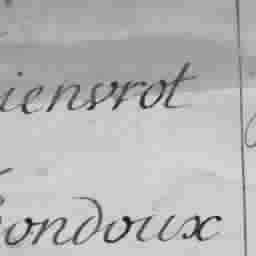 ienvrot
ondoux